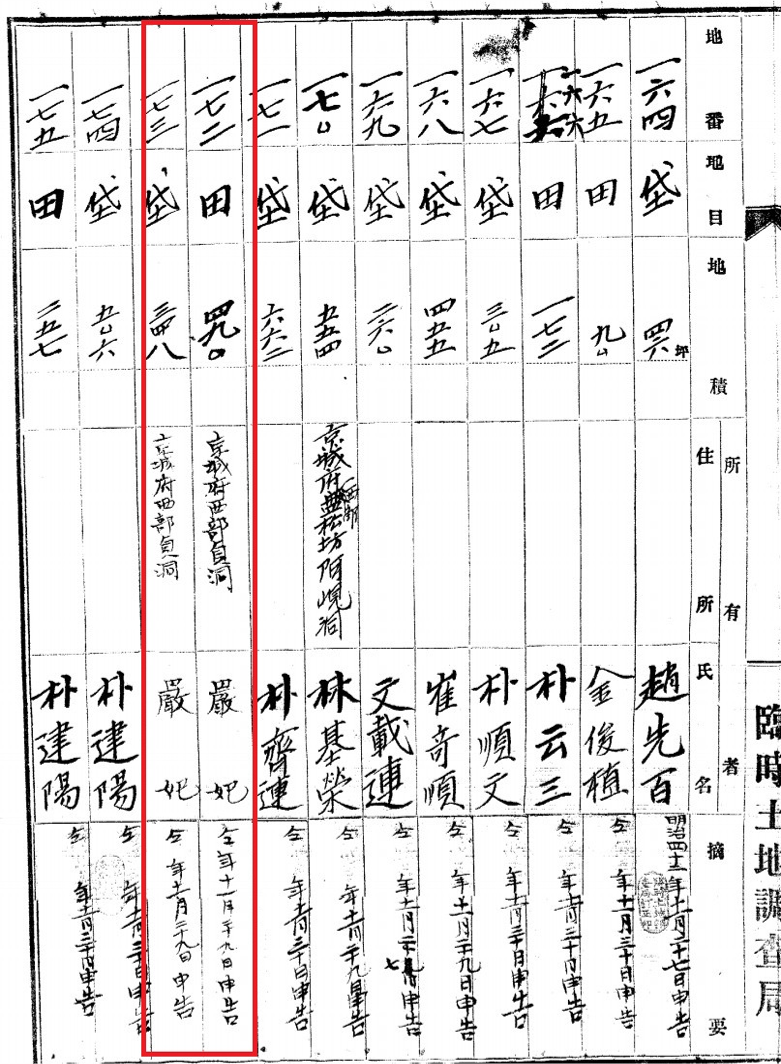 臨時土地調査局
地番 地目 地積 所有者 住所 氏名 摘要
一六四 垈 四六坪 趙先百 明治四十三年十一月二十七日申告
一六五 田 九〇 金俊植 仝年十一月三十日申告
一六六 田 一七二 朴云三 仝年十一月三十日申告
一六七 垈 三〇五 朴順文 仝年十一月三十日申告
一六八 垈 四五五 崔奇順 仝年十一月二十九日申告
一六九 垈 二六〇 文載連 仝年十一月二十七日申告
一七〇 垈 五五四 京城府西部盤松坊阿峴洞 林基榮 仝年十一月二十九日申告
一七一 垈 六六二 朴齊連 仝年十一月三十日申告
一七二 田 四九〇 京城府西部貞洞 嚴妃 仝年十一月二十九日申告
一七三 垈 三四八 京城府西部貞洞 嚴妃 仝年十一月二十九日申告
一七四 垈 五〇六 朴建陽 仝年十一月三十日申告
一七五 田 二五七 朴建陽 仝年十一月三十日申告